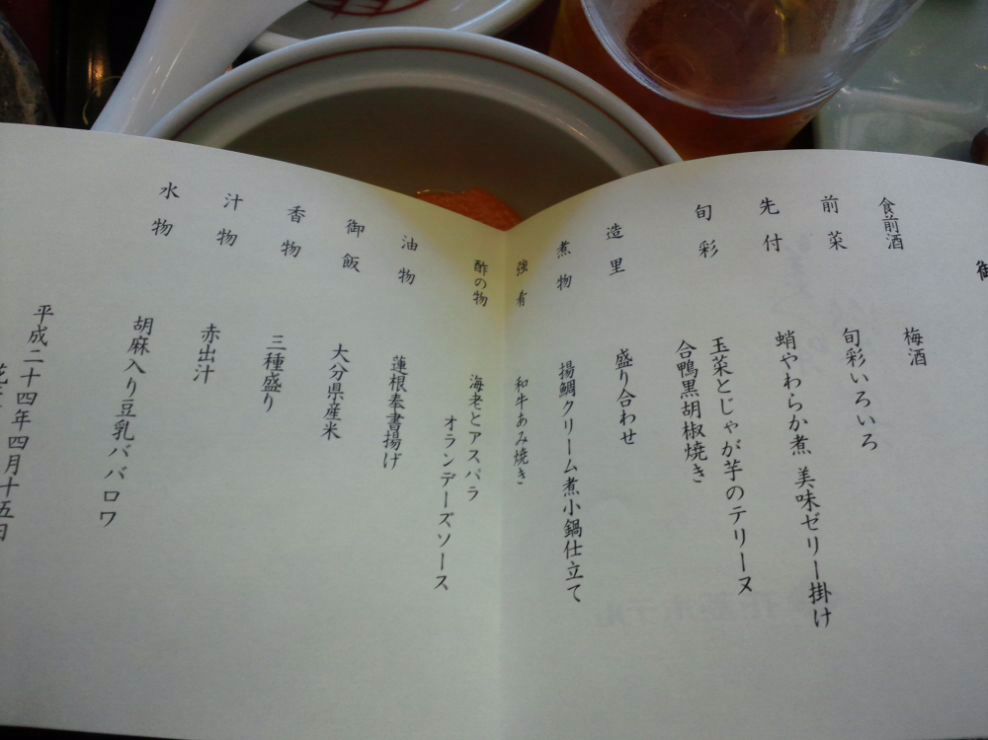 御
食前酒
梅酒
前菜
旬彩いろいろ
先付
蛸やわらか煮 美味ゼリー掛け
旬彩
玉菜とじゃが芋のテリーヌ
合鴨黒胡椒焼き
造里
盛り合わせ
煮物
揚鯛クリーム煮小鍋仕立て
強肴
和牛あみ焼き
酢の物
海老とアスパラ
オランデーズソース
油物
蓮根奉書揚げ
御飯
大分県産米
香物
三種盛り
汁物
赤出汁
水物
胡麻入り豆乳ババロワ
平成二十四年四月十五日